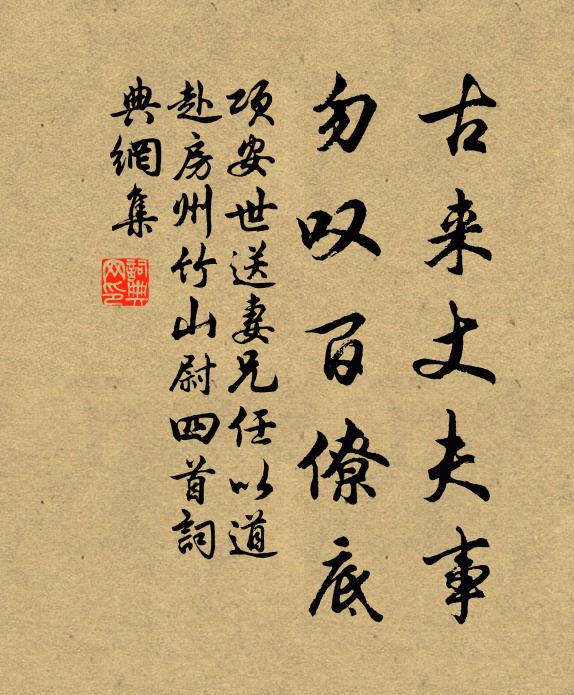 古来丈夫事
勿叹百僚底
项安世送妻兄任以道
赴房州竹山尉四首詞
典網集
詞典网印